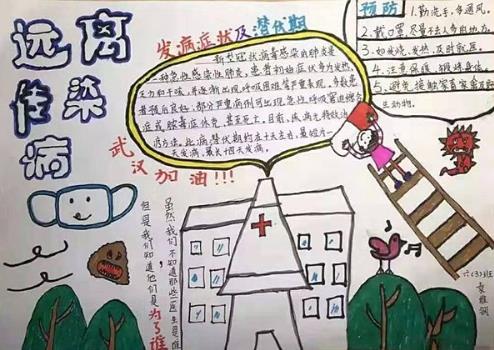 远离
传染
病
发病症状及潜伏期
新型冠状病毒感染的肺炎是
一种急性感染性肺炎,患者初始症状多为发热、
乏力和干咳,并逐渐出现呼吸困难等严重表现。多数患
者预后良好,部分严重病例可出现急性呼吸窘迫综合
征或脓毒症休克,甚至死亡。目前,
一天发病,最长十四天发病。
预防
1.勤洗手,多通风。
2.戴口罩,尽量不去人多的地方。
3.如发烧,发热,及时就医。
4.注意保暖,锻炼身体。
5.避免接触家畜家禽野
生动物。
武汉
加油!!!
虽然我们不知道那些医生是谁
但是我们知道他们是为了谁
六(3)班